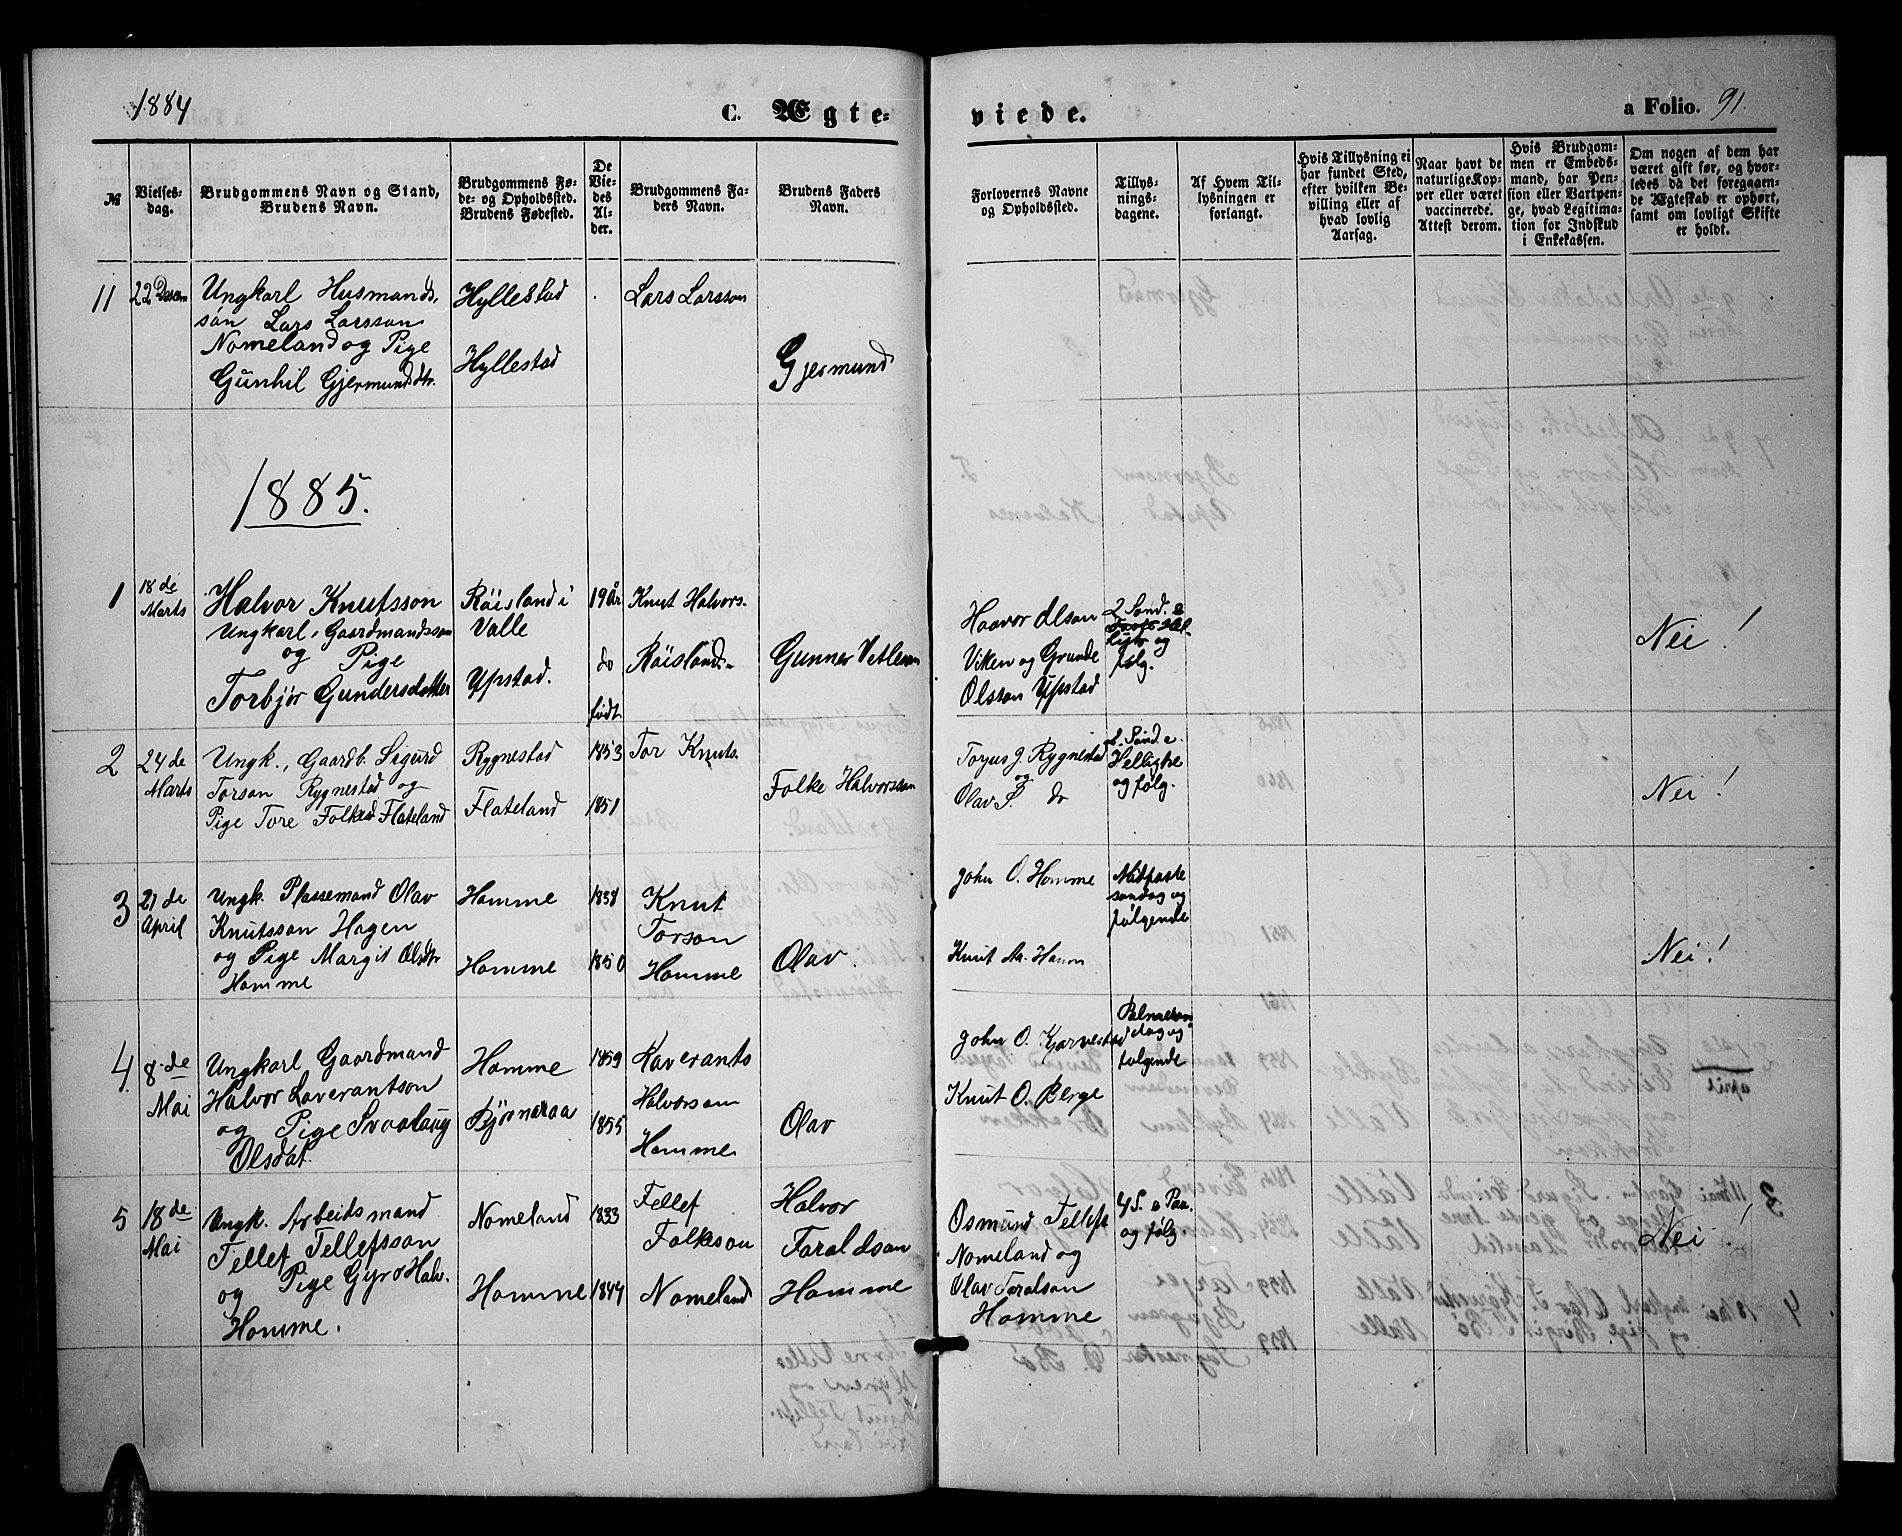 1884
C. Ægte-
viede.
a Folio. 91.
№
Vielses-
dag.
Brudgommens Navn og Stand,
Brudens Navn.
Brudgommens Fø-
de- og Opholdssted.
Brudens Fødested.
De
Vie-
des
Al-
der.
Brudgommens Fa-
ders Navn.
Brudens Faders
Navn.
Forlovernes Navne
og Opholdssted.
Tillys-
nings-
dagene.
Af Hvem Til-
lysningen er
forlangt.
Hvis Tillysning ei
har fundet Sted,
efter hvilken Be-
villing eller af
hvad lovlig
Aarsag.
Naar havt de
naturlige Kop-
per eller været
vaccinerede.
Attest derom.
Hvis Brudgom-
men er Embeds-
mand, har Pen-
sion eller Vartpen-
ge, hvad Legitima-
tion for Indskud
i Enkekassen.
Om nogen af dem har
været gift før, og hvor-
ledes da det foregaaen-
de Ægteskab er ophørt,
samt om lovligt Skifte
er holdt.
11
22 Decem
Ungkarl Husmands,
søn Lars Larsson
Nomeland og Pige
Gunhil Gjermundsdtr.
Hyllestad
Hyllestad
Lars Larsson
Gjermund
1885.
1
18de
Marts
Halvor Knutsson
Ungkarl, Gaardmandsson
og Pige
Torbjør Gundersdatter
Røisland i
Valle
Upstad.
19 År
do
født
Knut Halvors.
Røisland
Gunner Vetlesen
Haavor Olson
Viken og Grunde
Olsson Upstad
2 Sønd. e
og
følg.
Nei!
2
24de
Marts
Ungk., Gaardb. Sigurd
Torson Rygnestad og
Pige Tore Folked Flateland
Rygnestad
Flateland
1853
1851
Tor Knuts.
Folke Halvorsson
Torjus J. Rygnestad
og
Olav S. do
2. Sønd. e.
Helligtre
og følg.
Nei!
3
21de
April
Ungk. Plassemand Olav
Knutsson Hagen
og Pige Margit Olsdtr
Homme
Homme
Homme
1838
1850
Knut
Torson
Homme
Olav
John O. Homme
Knut Aa. Homm
Midfaste
søndag og
følgende
Nei!
4
8de
Mai
Ungkarl Gaardmand
Halvor Laverantson
og Pige Svaalaug
Olsdat.
Homme
Bjørnaraa
1859
1855
Laverants
Halvorson
Homme
Olav
John O. Kjørvestad
Knut O. Berge
Palmesøn
dag og
følgende
5
18de
Mai
Ungk. Arbeidsmand
Tellef Tellefsson
og Pige Gyro Halv.
Homme.
Nomeland
Homme
1833
1844
Tellef
Folkeson
Nomeland
Halvor
Taraldson
Homme
Osmund Tellefs
Nomeland og
Olav Taralson
Homme
4 S. e Paa.
og følg.
Nei!